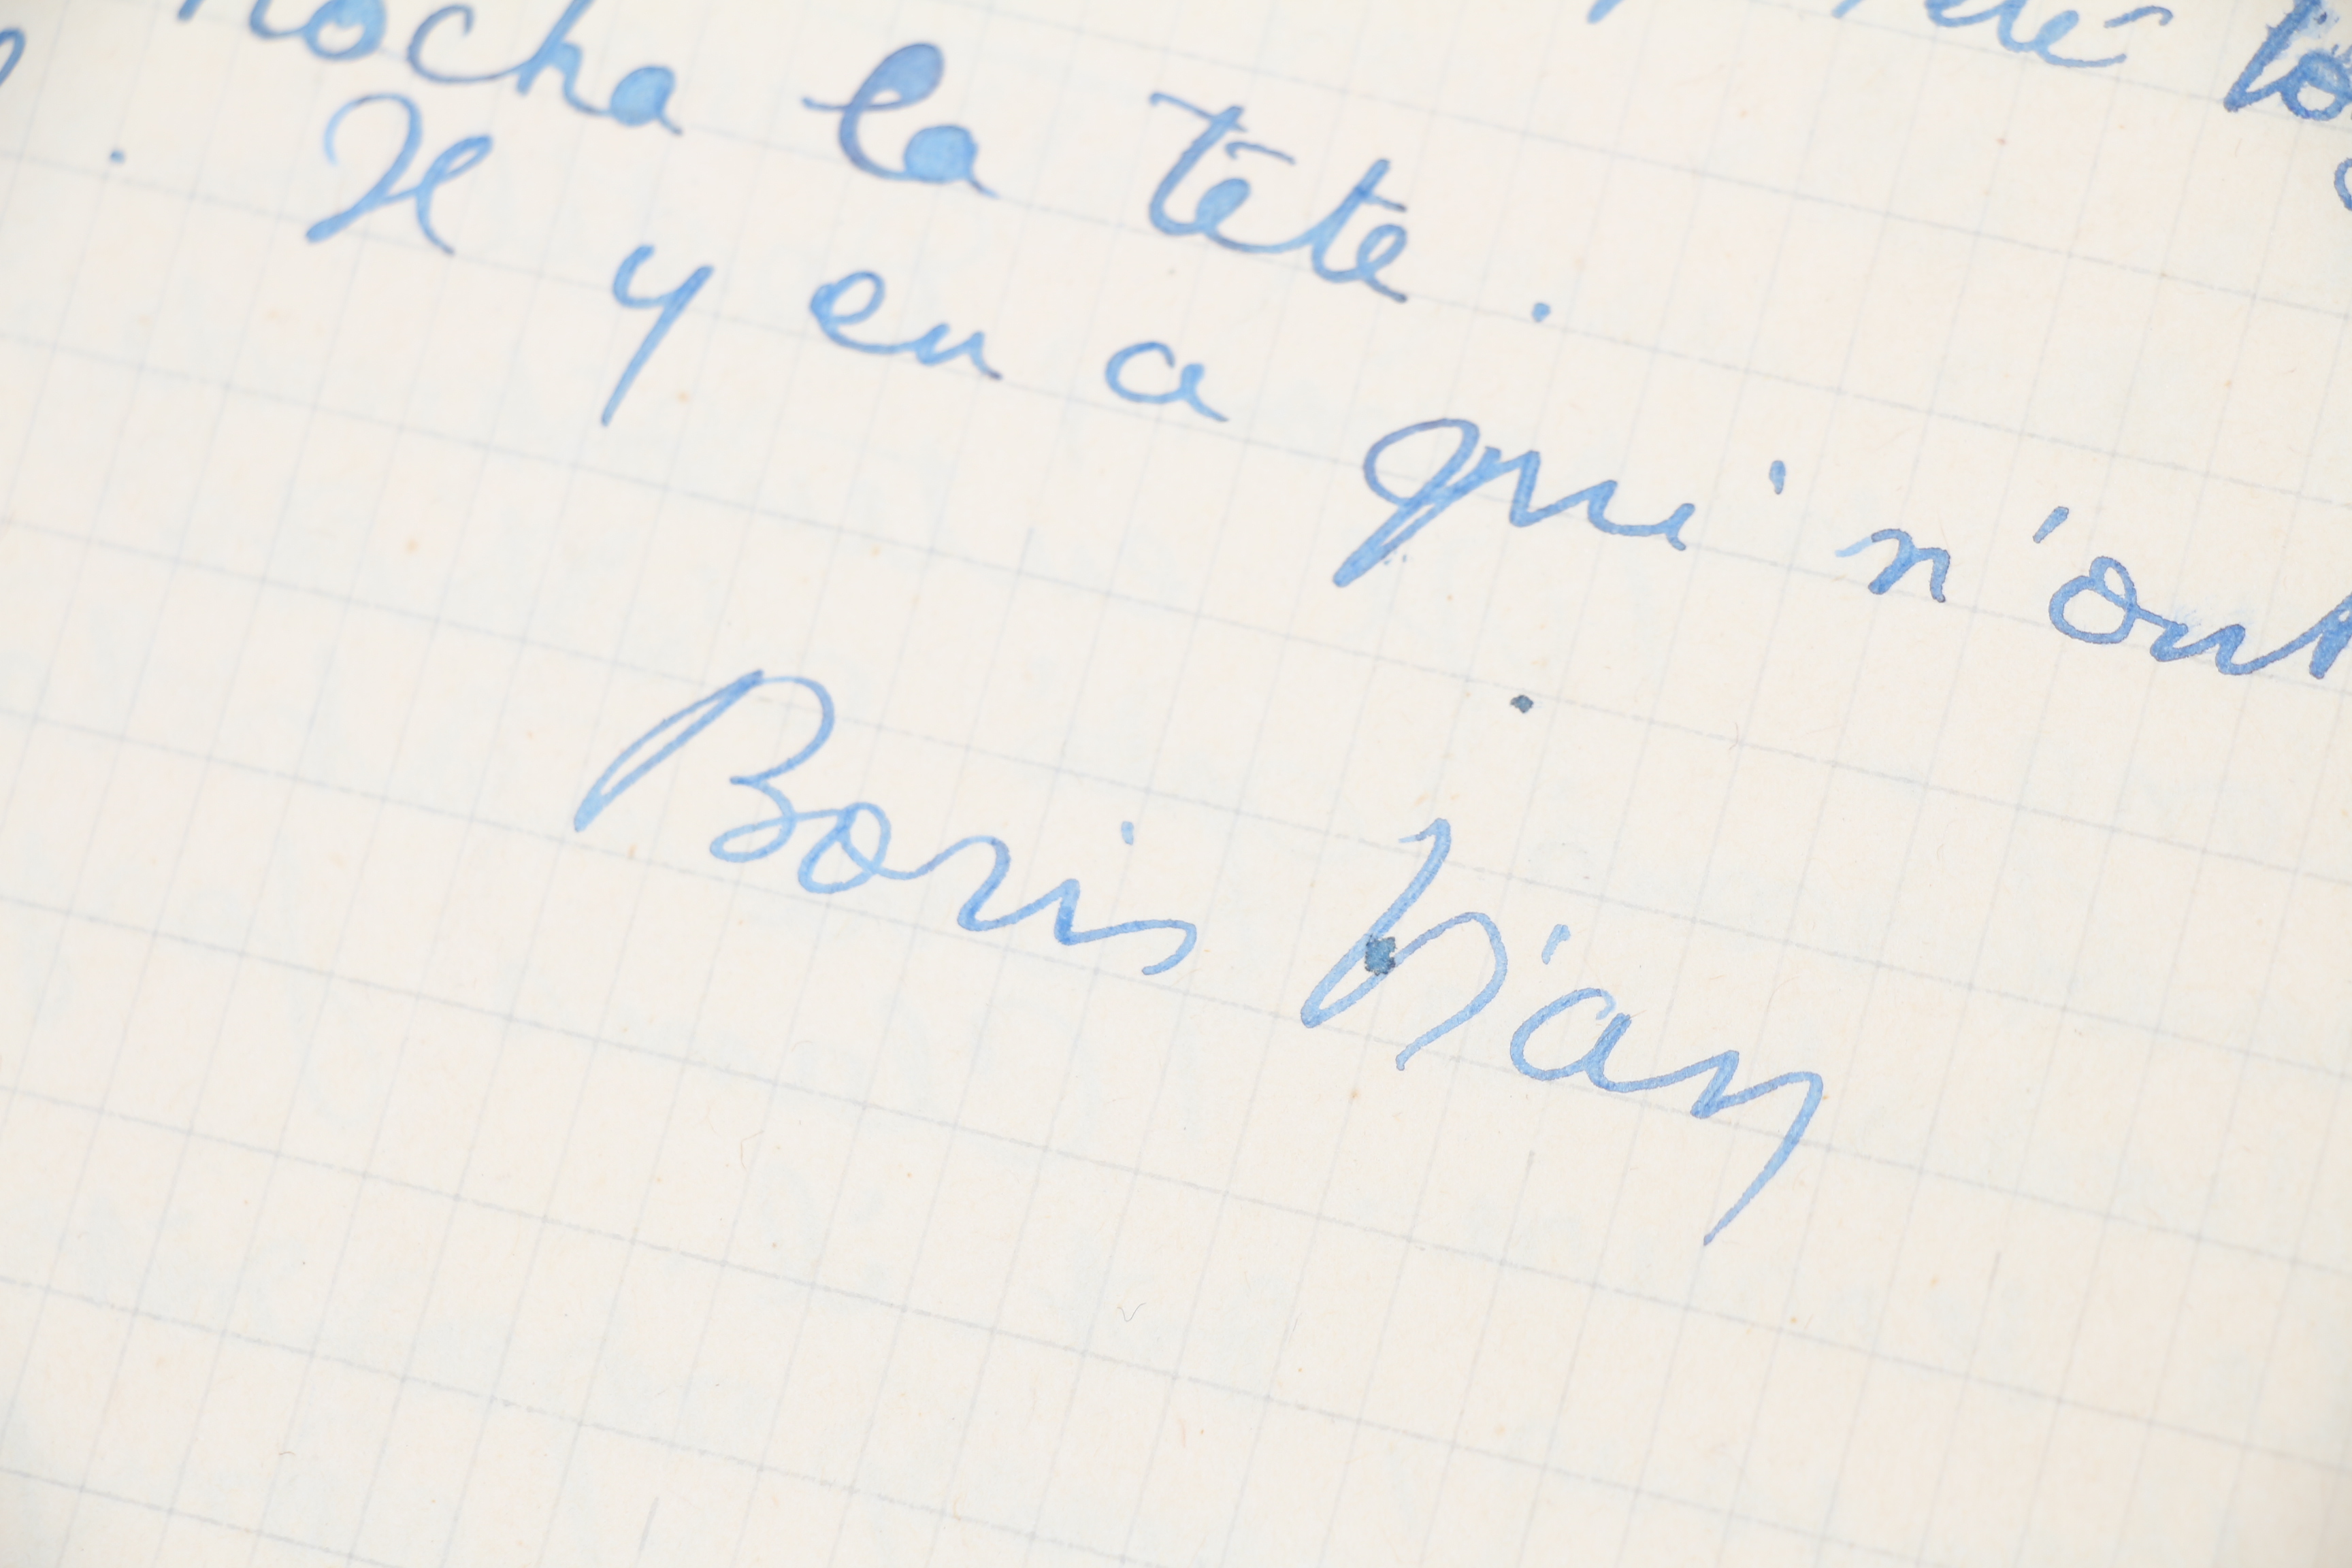 hocha la tête.
Il y en a qui n'ont
Boris Vian